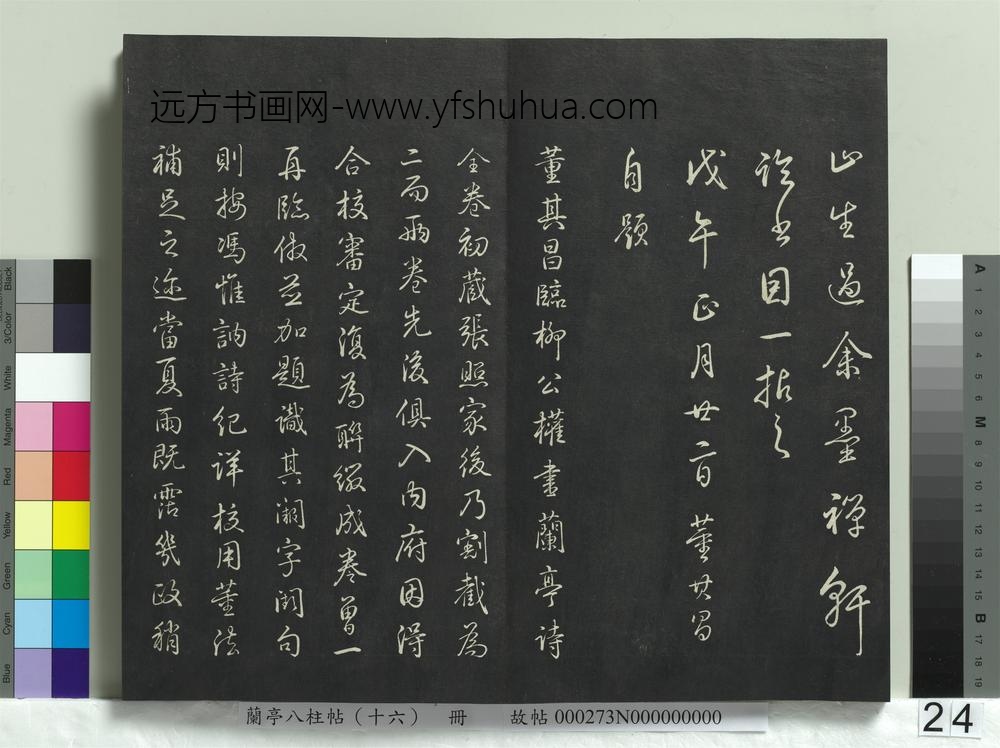 远方书画网-www.yfshuhua.com
山生過余墨禪軒
論書因一拈之
戊午正月廿二日董其昌
自題
董其昌臨柳公權書蘭亭诗
全卷初藏張照家後乃割截為
二而兩卷先後俱入內府因得
合校審定復為聯綴成卷曾一
再臨倣並加題識其漏字闕句
則按馮惟訥詩紀詳校用董法
補足之迩當夏雨既霑幾政稍
蘭亭八柱帖（十六） 冊 故帖 000273N000000000
24
Black
3/Color
White
Magenta
Red
Yellow
Green
Cyan
Blue
A
1
2
3
4
5
6
M
8
9
10
11
12
13
14
15
B
17
18
19